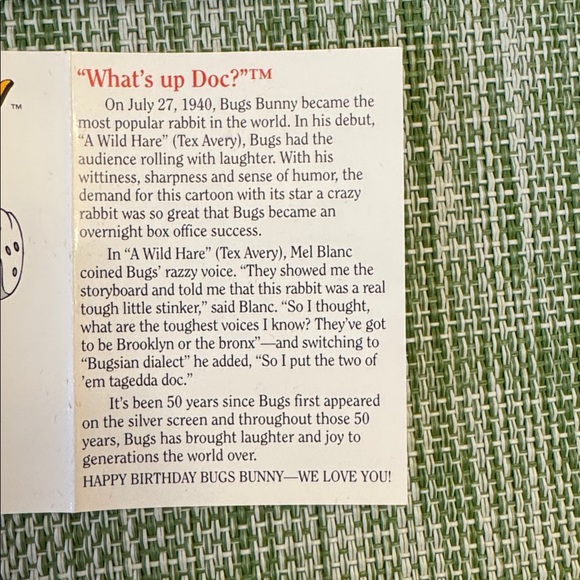 TM
“What’s up Doc?”TM
On July 27, 1940, Bugs Bunny became the
most popular rabbit in the world. In his debut,
“A Wild Hare” (Tex Avery), Bugs had the
audience rolling with laughter. With his
wittiness, sharpness and sense of humor, the
demand for this cartoon with its star a crazy
rabbit was so great that Bugs became an
overnight box office success.
In “A Wild Hare” (Tex Avery), Mel Blanc
coined Bugs’ razzy voice. “They showed me the
storyboard and told me that this rabbit was a real
tough little stinker,” said Blanc. “So I thought,
what are the toughest voices I know? They’ve got
to be Brooklyn or the bronx”—and switching to
“Bugsian dialect” he added, “So I put the two of
’em tagedda doc.”
It’s been 50 years since Bugs first appeared
on the silver screen and throughout those 50
years, Bugs has brought laughter and joy to
generations the world over.
HAPPY BIRTHDAY BUGS BUNNY—WE LOVE YOU!